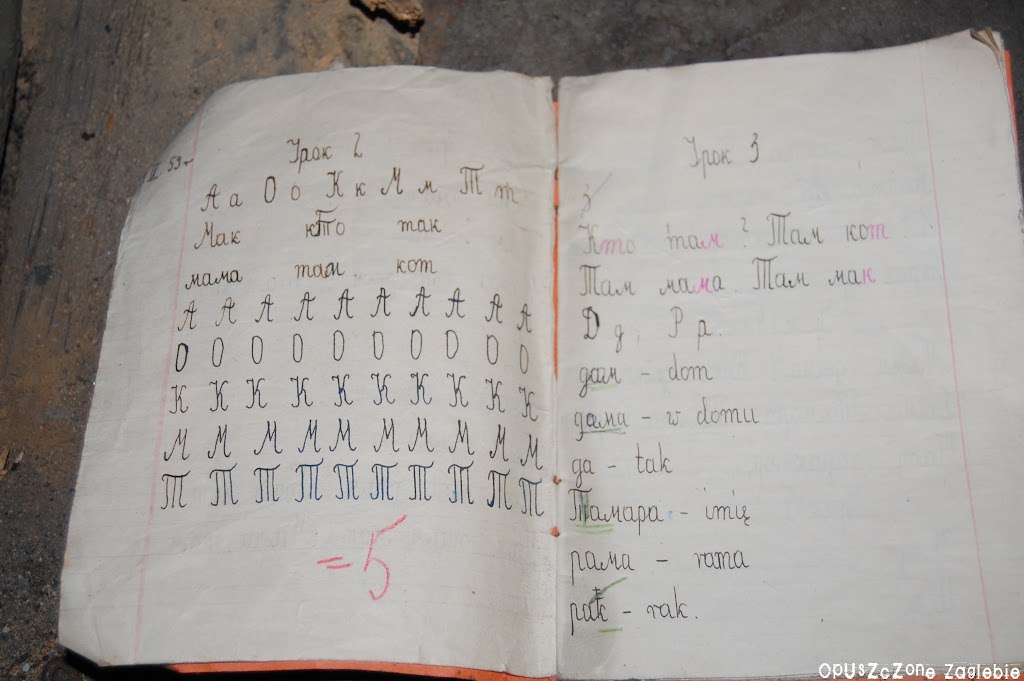 II 59 r
Урок 2
А а О о К к М м Т т
Мак кто так
мама там. кот
А А А А А А А А А А
О О О О О О О О О О
К К К К К К К К К К
М М М М М М М М М М
Т Т Т Т Т Т Т Т Т Т
=5
Урок 3
3
Кто там? Там кот
Там мама. Там мак
Д д, Р р.
дам - dom
дома - w domu
да - tak
Тамара - imię
рама - rama
рак - rak.
OPUSZCZONE ZAGLEBIE